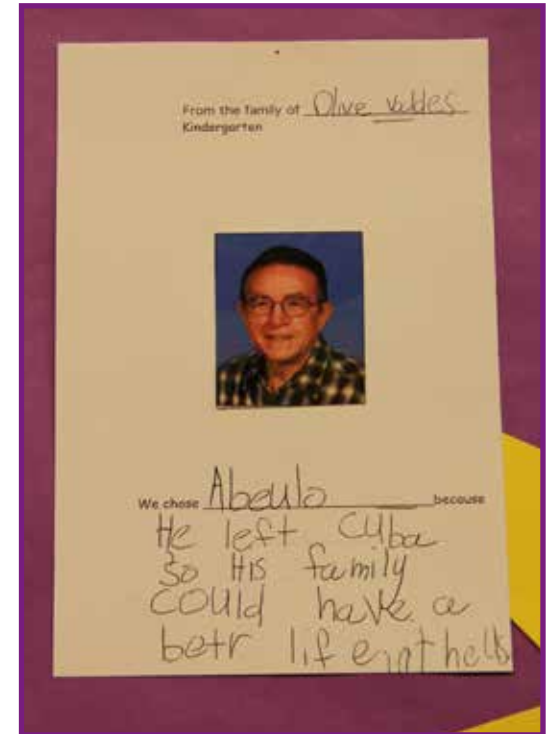 From the family of Olive Valdes
Kindergarten
We chose Abeulo because
He left Cuba
So HIS family
COUld have a
betr life in the US